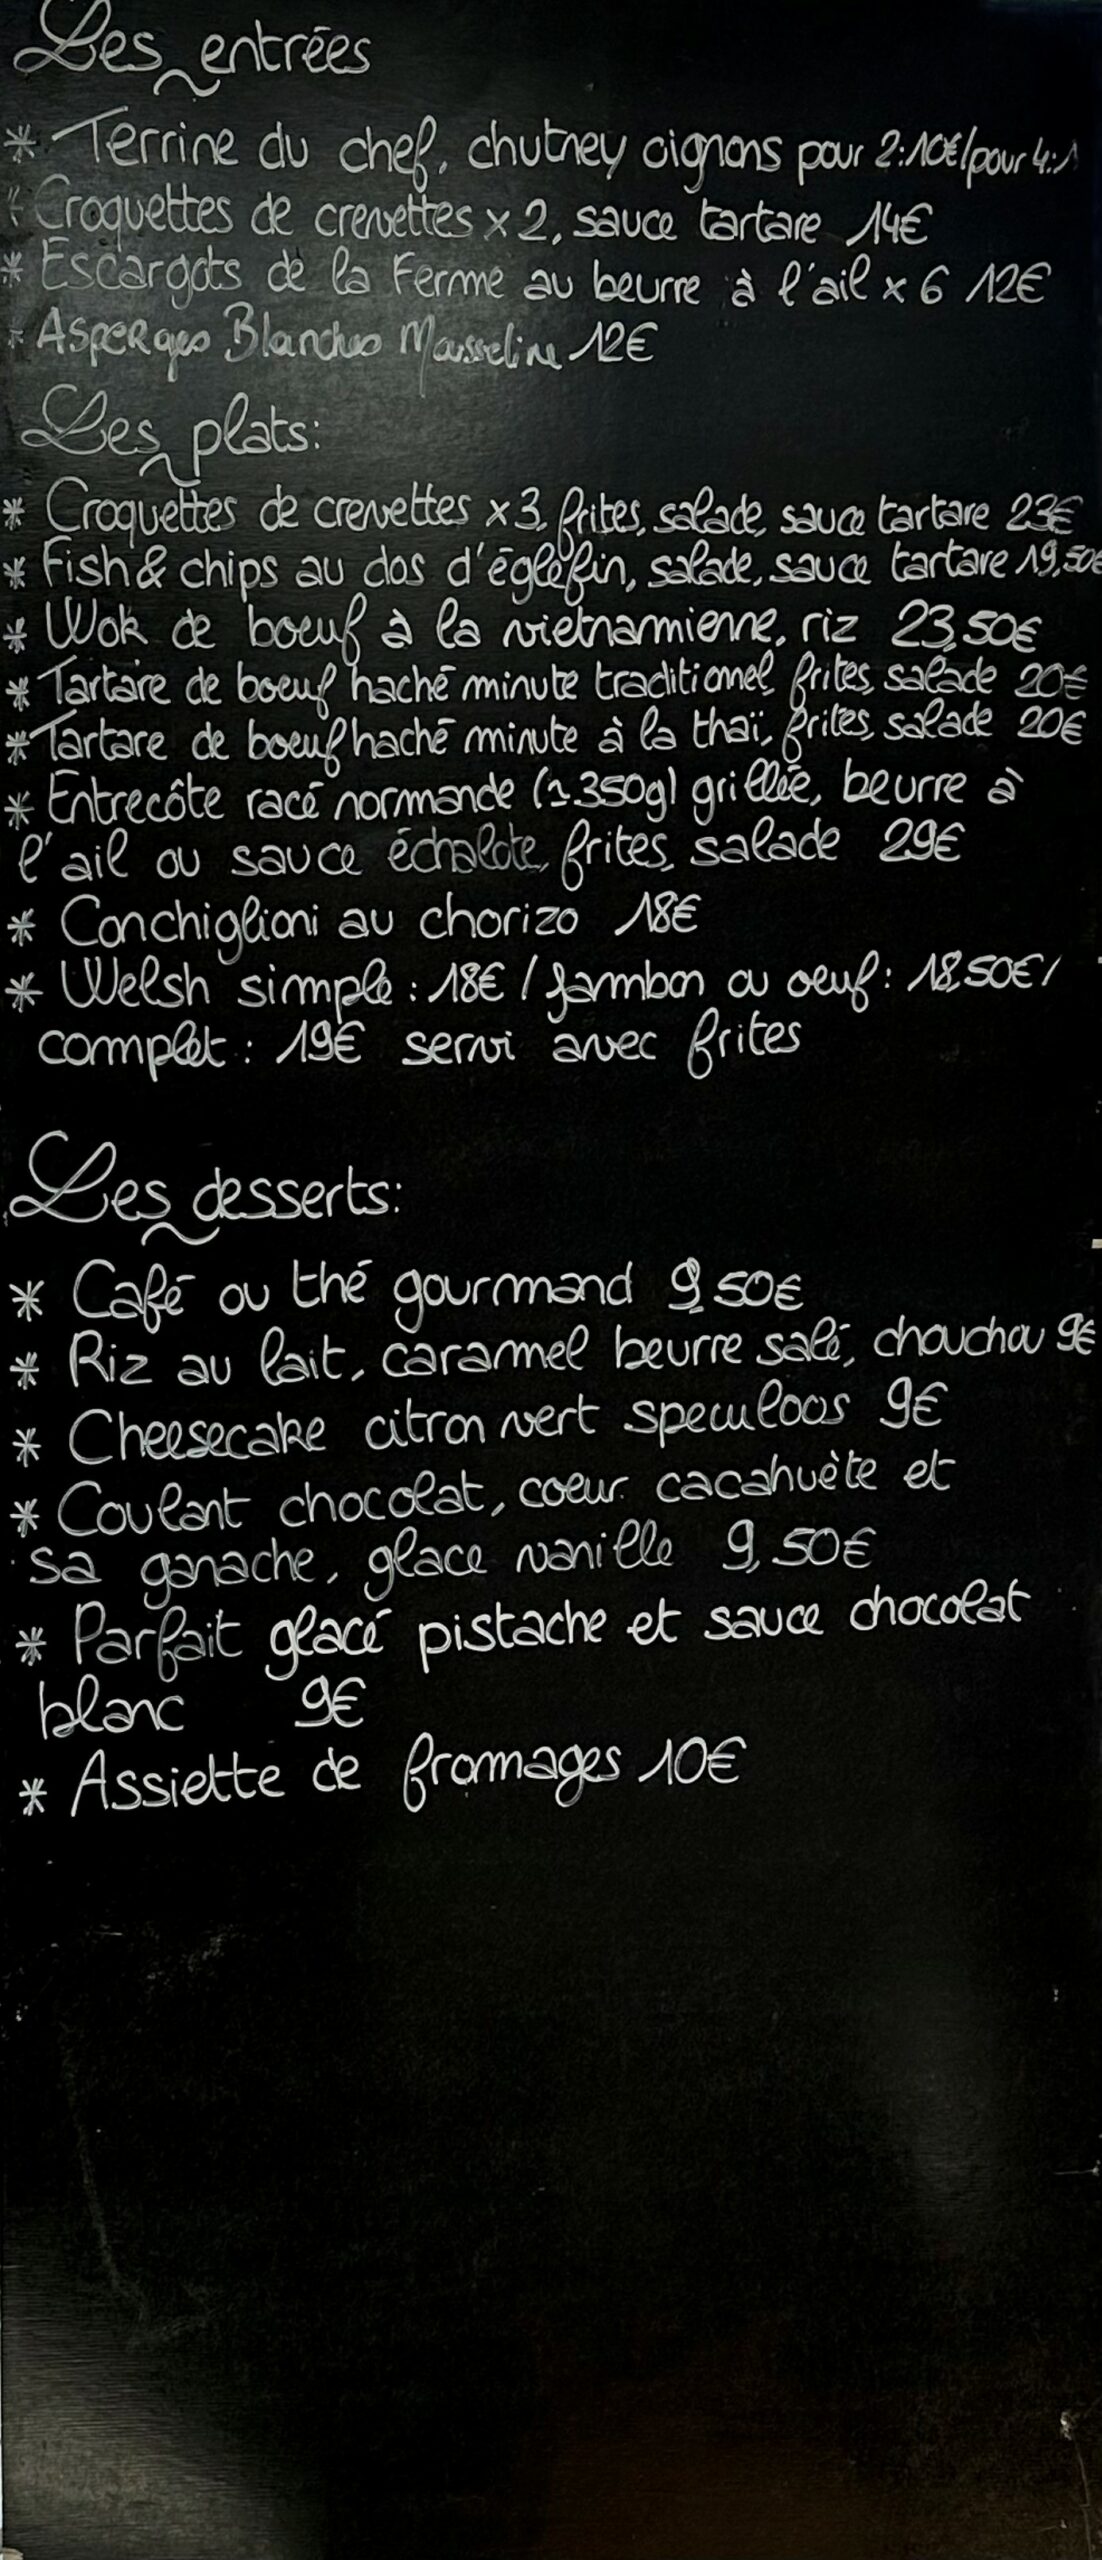 Les entrées
* Terrine du chef, chutney oignons pour 2:10€/pour 4:1
* Croquettes de crevettes x 2, sauce tartare 14€
* Escargots de la Ferme au beurre à l'ail x 6 12€
* Asperges Blanches Mousseline 12€
Les plats:
* Croquettes de crevettes x3, frites, salade, sauce tartare 23€
* Fish & chips au dos d'églefin, salade, sauce tartare 19,50€
* Wok de boeuf à la vietnamienne, riz 23,50€
* Tartare de boeuf haché minute traditionnel, frites, salade 20€
* Tartare de boeuf haché minute à la thaï, frites, salade 20€
* Entrecôte racé normande (≃350g) grillée, beurre à
l'ail ou sauce échalote, frites, salade 29€
* Conchiglioni au chorizo 18€
* Welsh simple : 18€ / Jambon ou oeuf : 18,50€ /
complet : 19€ servi avec frites
Les desserts:
* Café ou thé gourmand 9,50€
* Riz au lait, caramel beurre salé, chouchou 9€
* Cheesecake citron vert speculoos 9€
* Coulant chocolat, coeur cacahuète et
sa ganache, glace vanille 9,50€
* Parfait glacé pistache et sauce chocolat
blanc 9€
* Assiette de fromages 10€